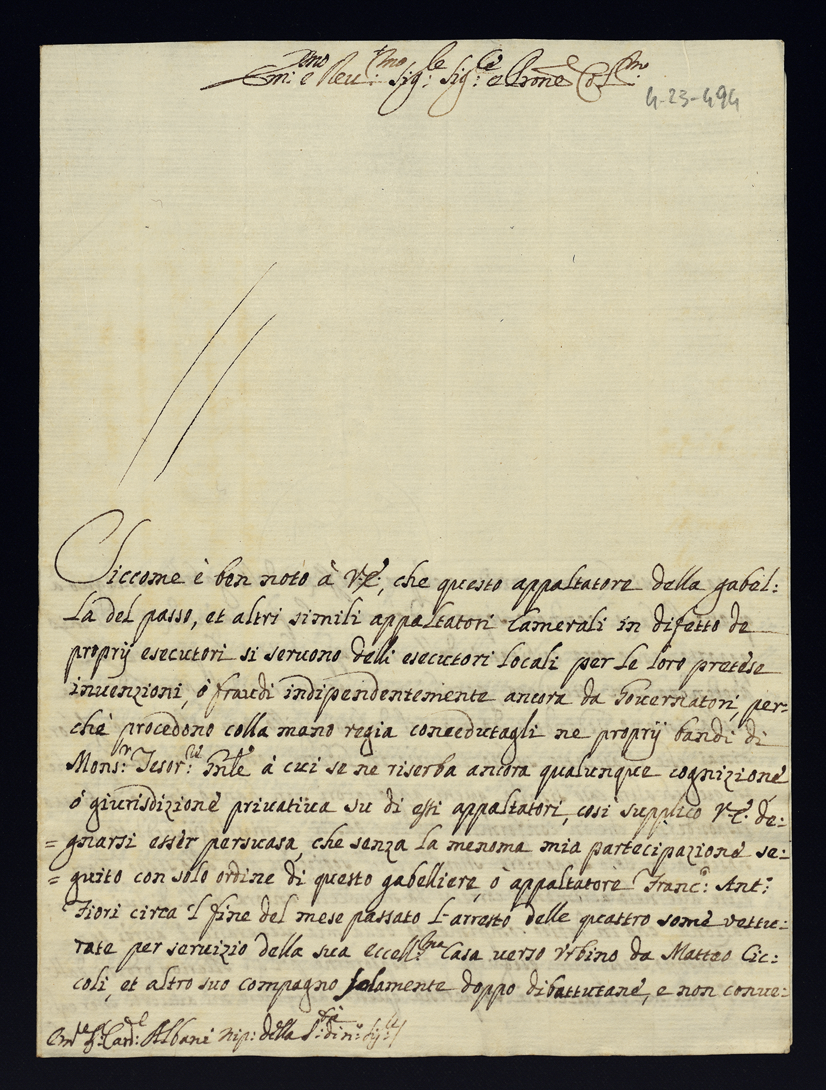 Em:mo e Reu:mo Sig:re Sig:re e Prone Col:mo
4-23-494
Siccome è ben noto à V.E., che questo appaltatore della gabel:
la del passo, et altri simili appaltatori Camerali in difetto de
proprij esecutori si seruono delli esecutori locali per le loro pretese
inuenzioni, ò fraudi indipendentemente ancora da Gouernatori, per=
chè procedono colla mano regia concedutagli ne proprij bandi di
Mons:r Tesor:re Gnle à cui se ne riserba ancora qualunque cognizione
ò giurisdizione priuatiua su di essi appaltatori, così supplico V.E. de:
= gnarsi esser persuasa, che senza la menoma mia partecipazione se:
= guito con solo ordine di questo gabelliere, ò appaltatore Franc:o Ant:o
Fiori circa 'l fine del mese passato l'arresto delle quattro some vettu:
rate per seruizio della sua eccell:ma Casa uerso Vrbino da Matteo Cic:
coli, et altro suo compagno solamente doppo dibattutane, e non conue=
Card: Albani Nip: della S:tà di n: Sig:re